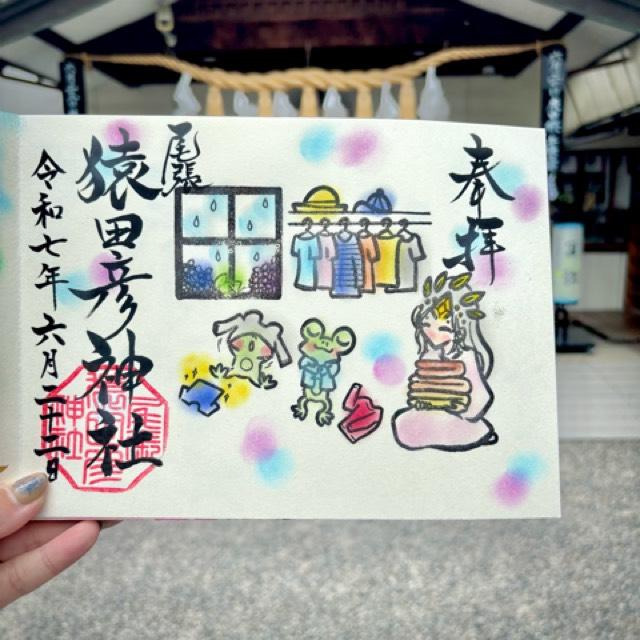 奉拝
尾張
猿田彦神社
令和七年六月二十二日